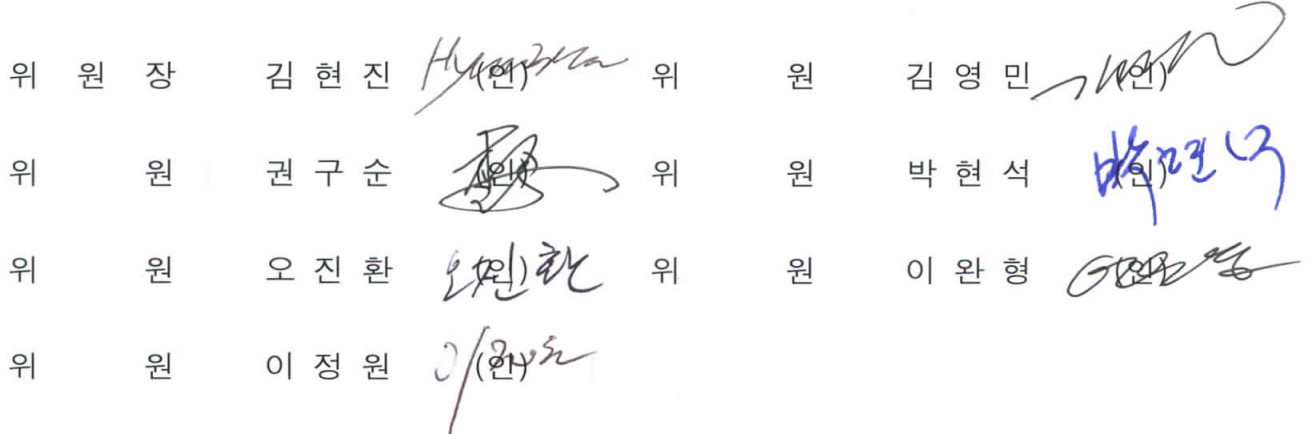 위 원 장 김 현 진 (인) 위 원 김 영 민 (인)
위 원 권 구 순 (인) 위 원 박 현 석 (인)
위 원 오 진 환 (인) 위 원 이 완 형 (인)
위 원 이 정 원 (인)